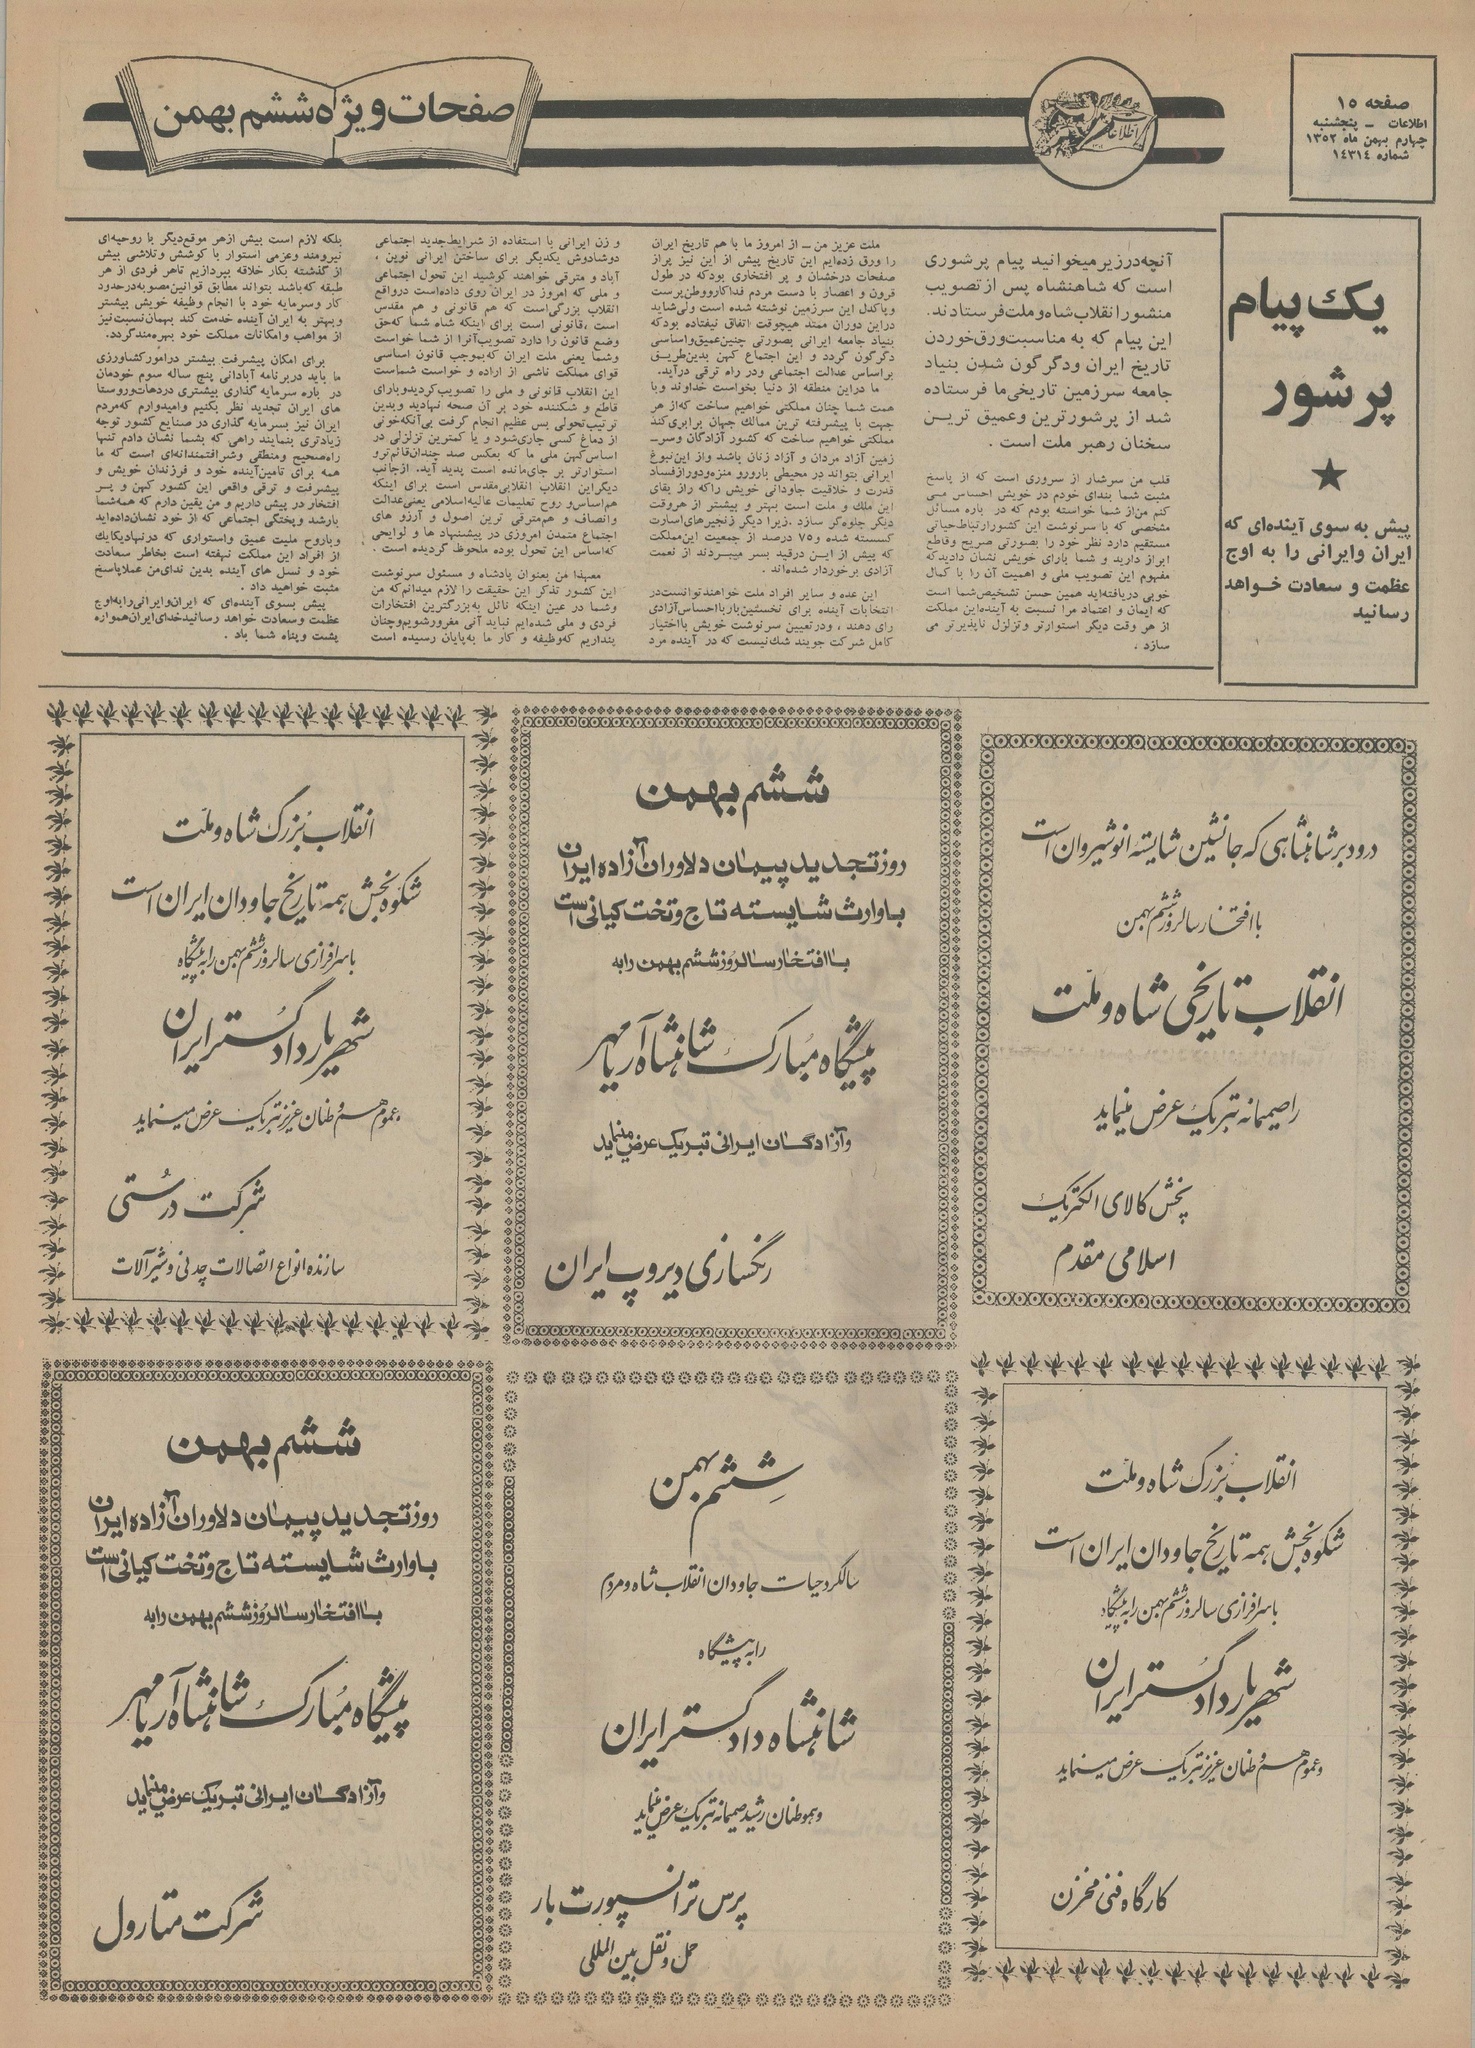 صفحه ۱۵
اطلاعات ــ پنجشنبه
چهارم بهمن ماه ۱۳۵۲
شماره ۱۴۳۱۴
صفحات ویژه ششم بهمن
یک پیام
پرشور
پیش به سوی آینده‌ای که
ایران وایرانی را به اوج
عظمت و سعادت خواهد
رسانید
آنچه‌درزیرمیخوانید پیام پرشوری
است که شاهنشاه پس ازتصویب
منشورانقلاب‌شاه‌وملت‌فرستادند.
این پیام که به مناسبت‌ورق‌خوردن
تاریخ ایران ودگرگون شدن بنیاد
جامعه سرزمین تاریخی‌ما فرستاده
شد از پرشورترین وعمیق تریـن
سخنان رهبر ملت است .
قلب من سرشار از سروری است که از پاسخ
مثبت شما بندای خودم در خویش احساس مـی
کنم من‌از شما خواسته بودم که در باره مسائل
مشخصی که با سرنوشت این کشورارتباط‌حیاتی
مستقیم دارد نظر خود را بصورتی صریح وقاطع
ابراز دارید و شما بارای خویش نشان دادیدکه
مفهوم این تصویب ملی و اهمیت آن را با کمال
خوبی دریافته‌اید همین حسن تشخیص‌شما است
که ایمان و اعتماد مرا نسبت به آینده‌این مملکت
از هر وقت دیگر استوارتر وتزلزل ناپذیرتر می
سازد .
ملت عزیز من ــ از امروز ما با هم تاریخ ایران
را ورق زده‌ایم این تاریخ پیش از این نیز پراز
صفحات درخشان و پر افتخاری بودکه در طول
قرون و اعصار با دست مردم فداکاروو‌طن‌پرست
وپاکدل این سرزمین نوشته شده است ولی‌شاید
دراین دوران ممتد هیچوقت اتفاق نیفتاده بودکه
بنیاد جامعه ایرانی بصورتی چنین‌عمیق‌واساسی
دگرگون گردد و این اجتماع کهن بدین‌طریق
براساس عدالت اجتماعی ودر راه ترقی درآید.
ما دراین منطقه از دنیا بخواست خداوند وبا
همت شما چنان مملکتی خواهیم ساخت که‌از هر
جهت با پیشرفته ترین ممالك جهان برابری‌کند
مملکتی خواهیم ساخت که کشور آزادگان وسرـ
زمین آزاد مردان و آزاد زنان باشد واز این‌نبوغ
ایرانی بتواند در محیطی بارورو منزه‌ودورازفساد
قدرت و خلاقیت جاودانی خویش راکه راز بقای
این ملك و ملت است بهتر و بیشتر از هروقت
دیگر جلوه‌گر سازد .زیرا دیگر زنجیرهای‌اسارت
گسسته شده و۷۵ درصد از جمعیت این‌مملکت
که پیش از ایـن درقید بسر میبردند از نعمت
آزادی برخوردار شده‌اند .
این عده و سایر افراد ملت خواهندتوانست‌در
انتخابات آینده برای نخستین‌بار‌با‌احساس‌آزادی
رای دهند ، ودرتعیین سرنوشت خویش بااختیار
کامل شرکت جویند شك‌نیست که در آینده مرد
و زن ایرانی با استفاده از شرایط‌جدید اجتماعی
دوشادوش یکدیگر برای ساختن ایرانی نوین ،
آباد و مترقی خواهند کوشید این تحول اجتماعی
و ملی که امروز در ایران روی داده‌است درواقع
انقلاب بزرگی‌است که هم قانونی و هم مقدس
است ،قانونی است برای اینکه شاه شما که‌حق
وضع قانون را دارد تصویب‌آنرا از شما خواست
وشما یعنی ملت ایران که‌بموجب قانون اساسی
قوای مملکت ناشی از اراده و خواست شماست
این انقلاب قانونی و ملی را تصویب‌کردیدوبارای
قاطع و شکننده خود بر آن صحه نهادید وبدین
ترتیب‌تحولی بس عظیم انجام گرفت بی‌آنکه‌خونی
از دماغ کسی جاری‌شود و یا کمترین تزلزلی در
اساس‌کهن ملی ما که بعکس صد چندان‌قائم‌ترو
استوارتر بر جای‌مانده است پدید آید. ازجانب
دیگراین انقلاب انقلابی‌مقدس است برای اینکه
هم‌اساس‌و روح تعلیمات عالیه‌اسلامی یعنی‌عدالت
وانصاف و هم‌مترقی ترین اصول و آرزو های
اجتماع متمدن امروزی در پیشنهاد ها و لوایحی
که‌اساس این تحول بوده ملحوظ گردیده است .
معهذا من بعنوان پادشاه و مسئول سرنوشت
این کشور تذکر این حقیقت را لازم میدانم‌که من
وشما در عین اینکه نائل به‌بزرگترین افتخارات
فردی و ملی شده‌ایم نباید آنی مغرورشویم‌وچنان
پنداریم که‌وظیفه و کار ما به‌پایان رسیده است
بلکه لازم است بیش ازهر موقع‌دیگر با روحیه‌ای
نیرومند وعزمی استوار با کوشش وتلاشی بیش
از گذشته بکار خلاقه بپردازیم تاهر فردی از هر
طبقه که‌باشد بتواند مطابق قوانین‌مصوبه‌درحدود
کار وسرمایه خود با انجام وظیفه خویش بیشتر
وبهتر به ایران آینده خدمت کند بهمان‌نسبت‌نیز
از مواهب وامکانات مملکت خود بهره‌مندگردد.
برای امکان پیشرفت بیشتر درامورکشاورزی
ما باید دربرنامه آبادانی پنج ساله سوم خودمان
در باره سرمایه گذاری بیشتری دردهات‌وروستا
های ایران تجدید نظر بکنیم وامیدوارم که‌مردم
ایران نیز بسرمایه گذاری در صنایع کشور توجه
زیادتری بنمایند راهی که بشما نشان دادم تنها
راه‌صحیح ومنطقی وشرافتمندانه‌ای است که ما
همه برای تامین‌آینده خود و فرزندان خویش و
پیشرفت و ترقی واقعی این کشور کهن و پـر
افتخار در پیش داریم و من یقین دارم که همه‌شما
بارشد وپختگی اجتماعی که از خود نشان‌داده‌اید
وباروح ملیت عمیق واستواری که درنهاد‌یکایك
از افراد این مملکت نهفته است بخاطر سعادت
خود و نسل های آینده بدین ندای‌من عملاپاسخ
مثبت خواهید داد .
پیش بسوی آینده‌ای که ایران‌وایرانی‌رابه‌اوج
عظمت وسعادت خواهد رسانیدخدای‌ایران‌همواره
پشت وپناه شما باد .
درود بر شاهنشاهی که جانشین شایسته انوشیروان است
با افتخار سالروز ششم بهمن
انقلاب تاریخی شاه و ملت
را صمیمانه تبریک عرض مینماید
پخش کالای الکتریک
اسلامی مقدم
ششم بهمن
روز تجدید پیمان دلاوران آزاده ایران
با وارث شایسته تاج و تخت کیانی است
با افتخار سالروز ششم بهمن را به
پیشگاه مبارک شاهنشاه آریامهر
و آزادگان ایرانی تبریک عرض مینماید
رنگسازی دیروپ ایران
انقلاب بزرگ شاه و ملت
شکوه بخش همه تاریخ جاودان ایران است
با سرافرازی سالروز ششم بهمن را به پیشگاه
شهریار دادگستر ایران
و عموم هم وطنان عزیز تبریک عرض مینماید
شرکت درستی
سازنده انواع اتصالات چدنی و شیرآلات
انقلاب بزرگ شاه و ملت
شکوه بخش همه تاریخ جاودان ایران است
با سرافرازی سالروز ششم بهمن را به پیشگاه
شهریار دادگستر ایران
و عموم هم وطنان عزیز تبریک عرض مینماید
کارگاه فنی مخزن
ششم بهمن
سالگرد حیات جاودان انقلاب شاه و مردم
را به پیشگاه
شاهنشاه دادگستر ایران
و هموطنان رشید صمیمانه تبریک عرض مینماید
پرس ترانسپورت بار
حمل و نقل بین المللی
ششم بهمن
روز تجدید پیمان دلاوران آزاده ایران
با وارث شایسته تاج و تخت کیانی است
با افتخار سالروز ششم بهمن را به
پیشگاه مبارک شاهنشاه آریامهر
و آزادگان ایرانی تبریک عرض مینماید
شرکت متارول